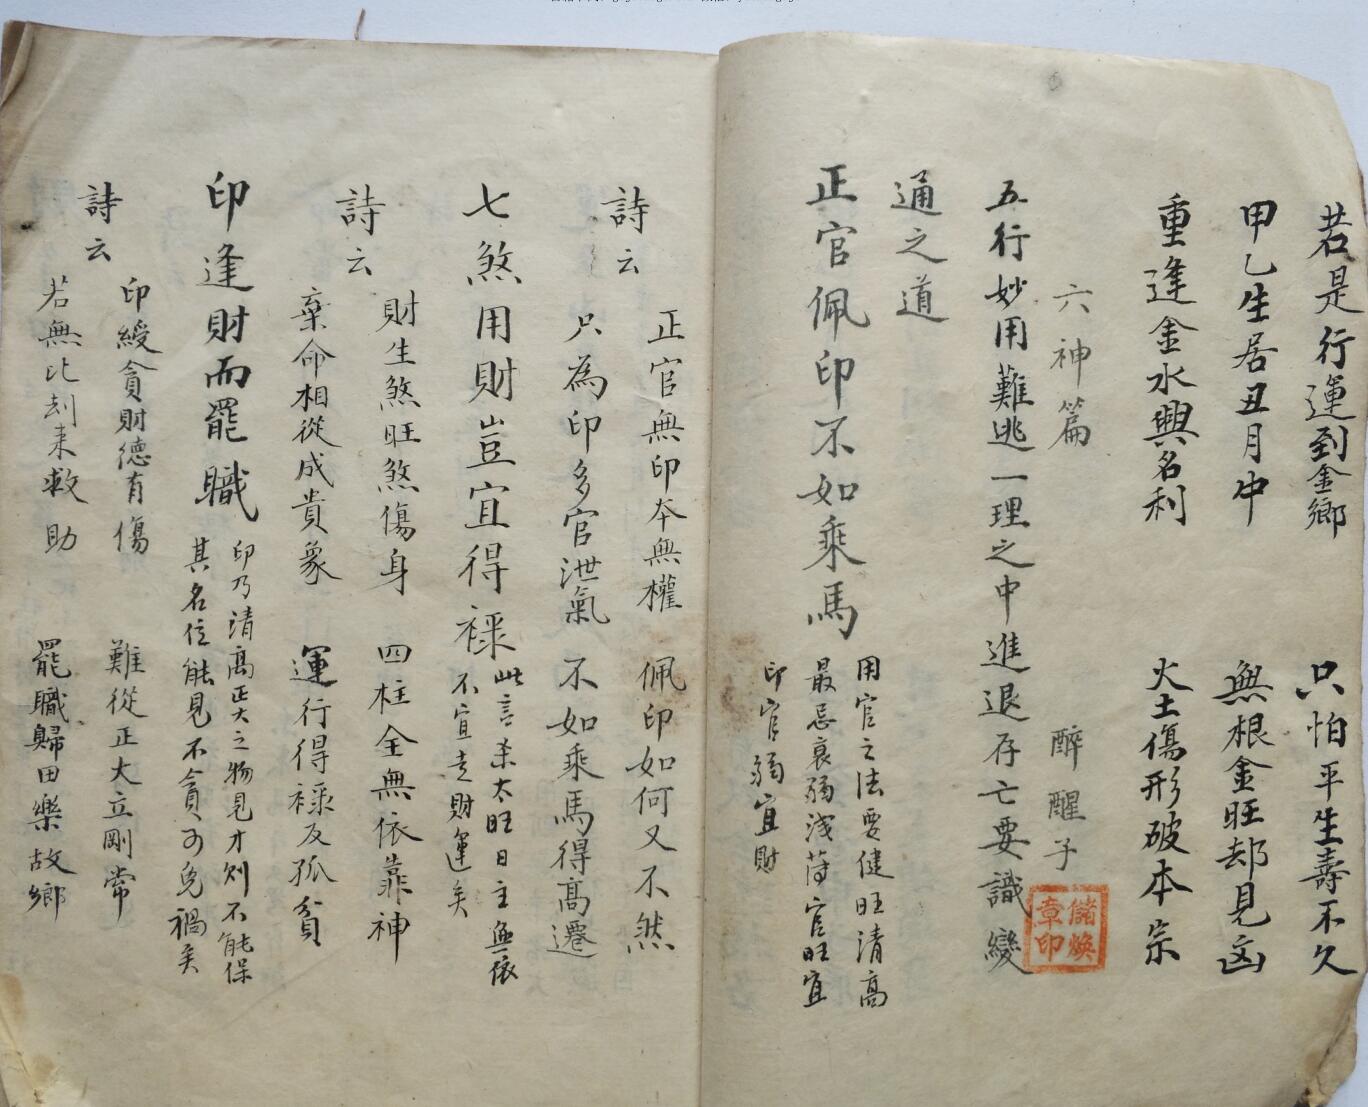 若是行運到金鄉 只怕平生壽不久
甲乙生居丑月中 無根金旺却見凶
重逢金水興名利 火土傷形破本宗
六神篇 醉醒子
儲煥章印
五行妙用難逃一理之中進退存亡要識變
通之道
正官佩印不如乘馬
用官之法要健旺清高
最忌衰弱淺薄官旺宜
印官弱宜財
詩云
正官無印本無權 佩印如何又不然
只為印多官泄氣 不如乘馬得高遷
七煞用財豈宜得祿
此言杀太旺日主無依
不宜走財運矣
詩云
財生煞旺煞傷身 四柱全無依靠神
棄命相從成貴象 運行得祿反孤貧
印逢財而罷職
印乃清高正大之物見才則不能保
其名位能見不貪可免禍矣
詩云
印綬貪財德有傷 難從正大立剛常
若無比刦来救助 罷職歸田樂故鄉